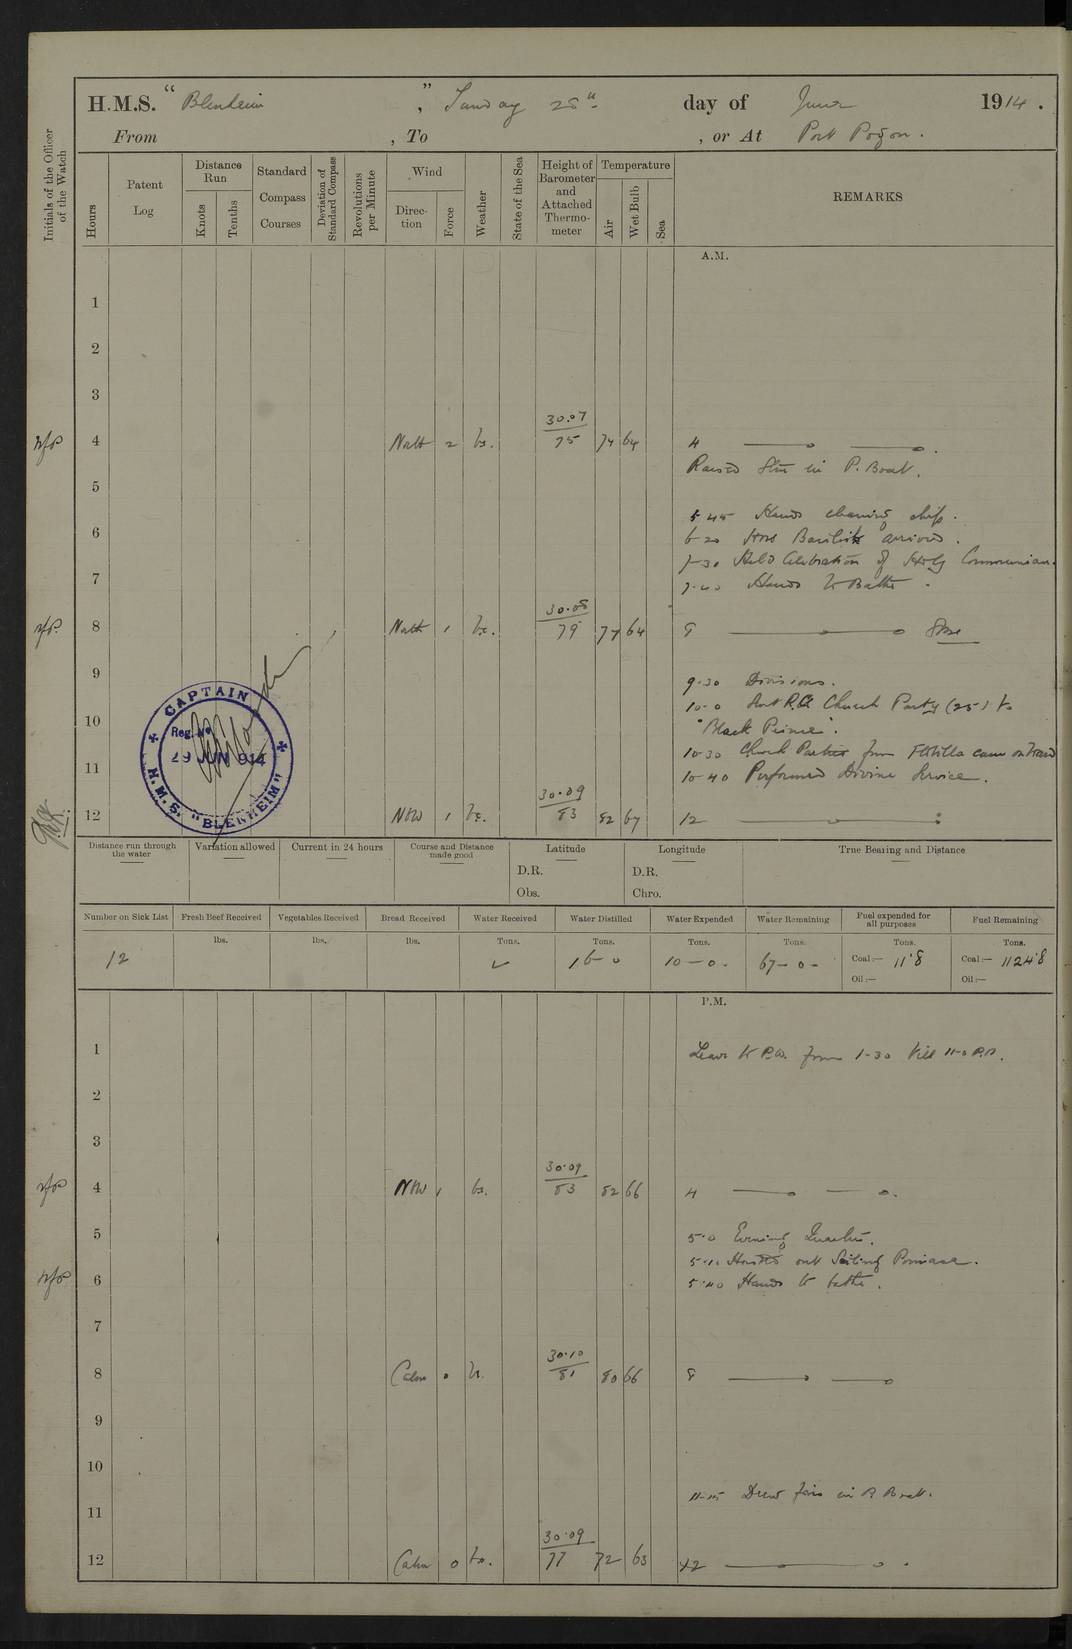 H.M.S. “Blenheim”, Sunday 28th day of June 1914.
From , To , or At Port Pogon.
Initials of the Officer of the Watch
Hours
Patent Log
Distance Run
Knots
Tenths
Standard Compass Courses
Deviation of Standard Compass
Revolutions per Minute
Wind
Direction
Force
Weather
State of the Sea
Height of Barometer and Attached Thermometer
Temperature
Air
Wet Bulb
Sea
REMARKS
A.M.
1
2
3
4 North 2 bc. 30.07 75 74 64 4
Raised Stm in P. Boat.
5
5-45 Hands cleaning ship.
6
6-20 HMS Basilisk arrived.
7-30 Held Celebration of Holy Communion.
7
7-40 Hands to Bathe.
8 North 1 bc. 30.08 79 77 64 8
9
9-30 Divisions.
10-0 Sent R.C. Church Party (25) to
10
"Black Prince".
10-30 Church Parties from Flotilla came onboard
11
10-40 Performed Divine Service.
12 NW 1 bc. 30.09 83 82 67 12
CAPTAIN
Reg. No
29 JUN 914
H.M.S. "BLENHEIM"
Distance run through the water
Variation allowed
Current in 24 hours
Course and Distance made good
Latitude
D.R.
Obs.
Longitude
D.R.
Chro.
True Bearing and Distance
Number on Sick List
Fresh Beef Received
Vegetables Received
Bread Received
Water Received
Water Distilled
Water Expended
Water Remaining
Fuel expended for all purposes
Fuel Remaining
lbs. lbs. lbs. Tons. Tons. Tons. Tons. Tons. Tons.
12 16-0 10-0- 67-0- Coal:— 11·8 Coal:— 1124·8
Oil:— Oil:—
P.M.
1 Leave to P.O. from 1-30 till 11-0 P.M.
2
3
4 NW 1 bc. 30.09 83 82 66 4
5
5.0 Evening Quarters.
Hoisted out Sailing Pinnace.
6 5.40 Hands to bathe.
7
8 Calm 0 b. 30.10 81 80 66 8
9
10
11-15 Drew fires in P. Boat.
11
12 Calm 0 bc. 30.09 77 72 63 12